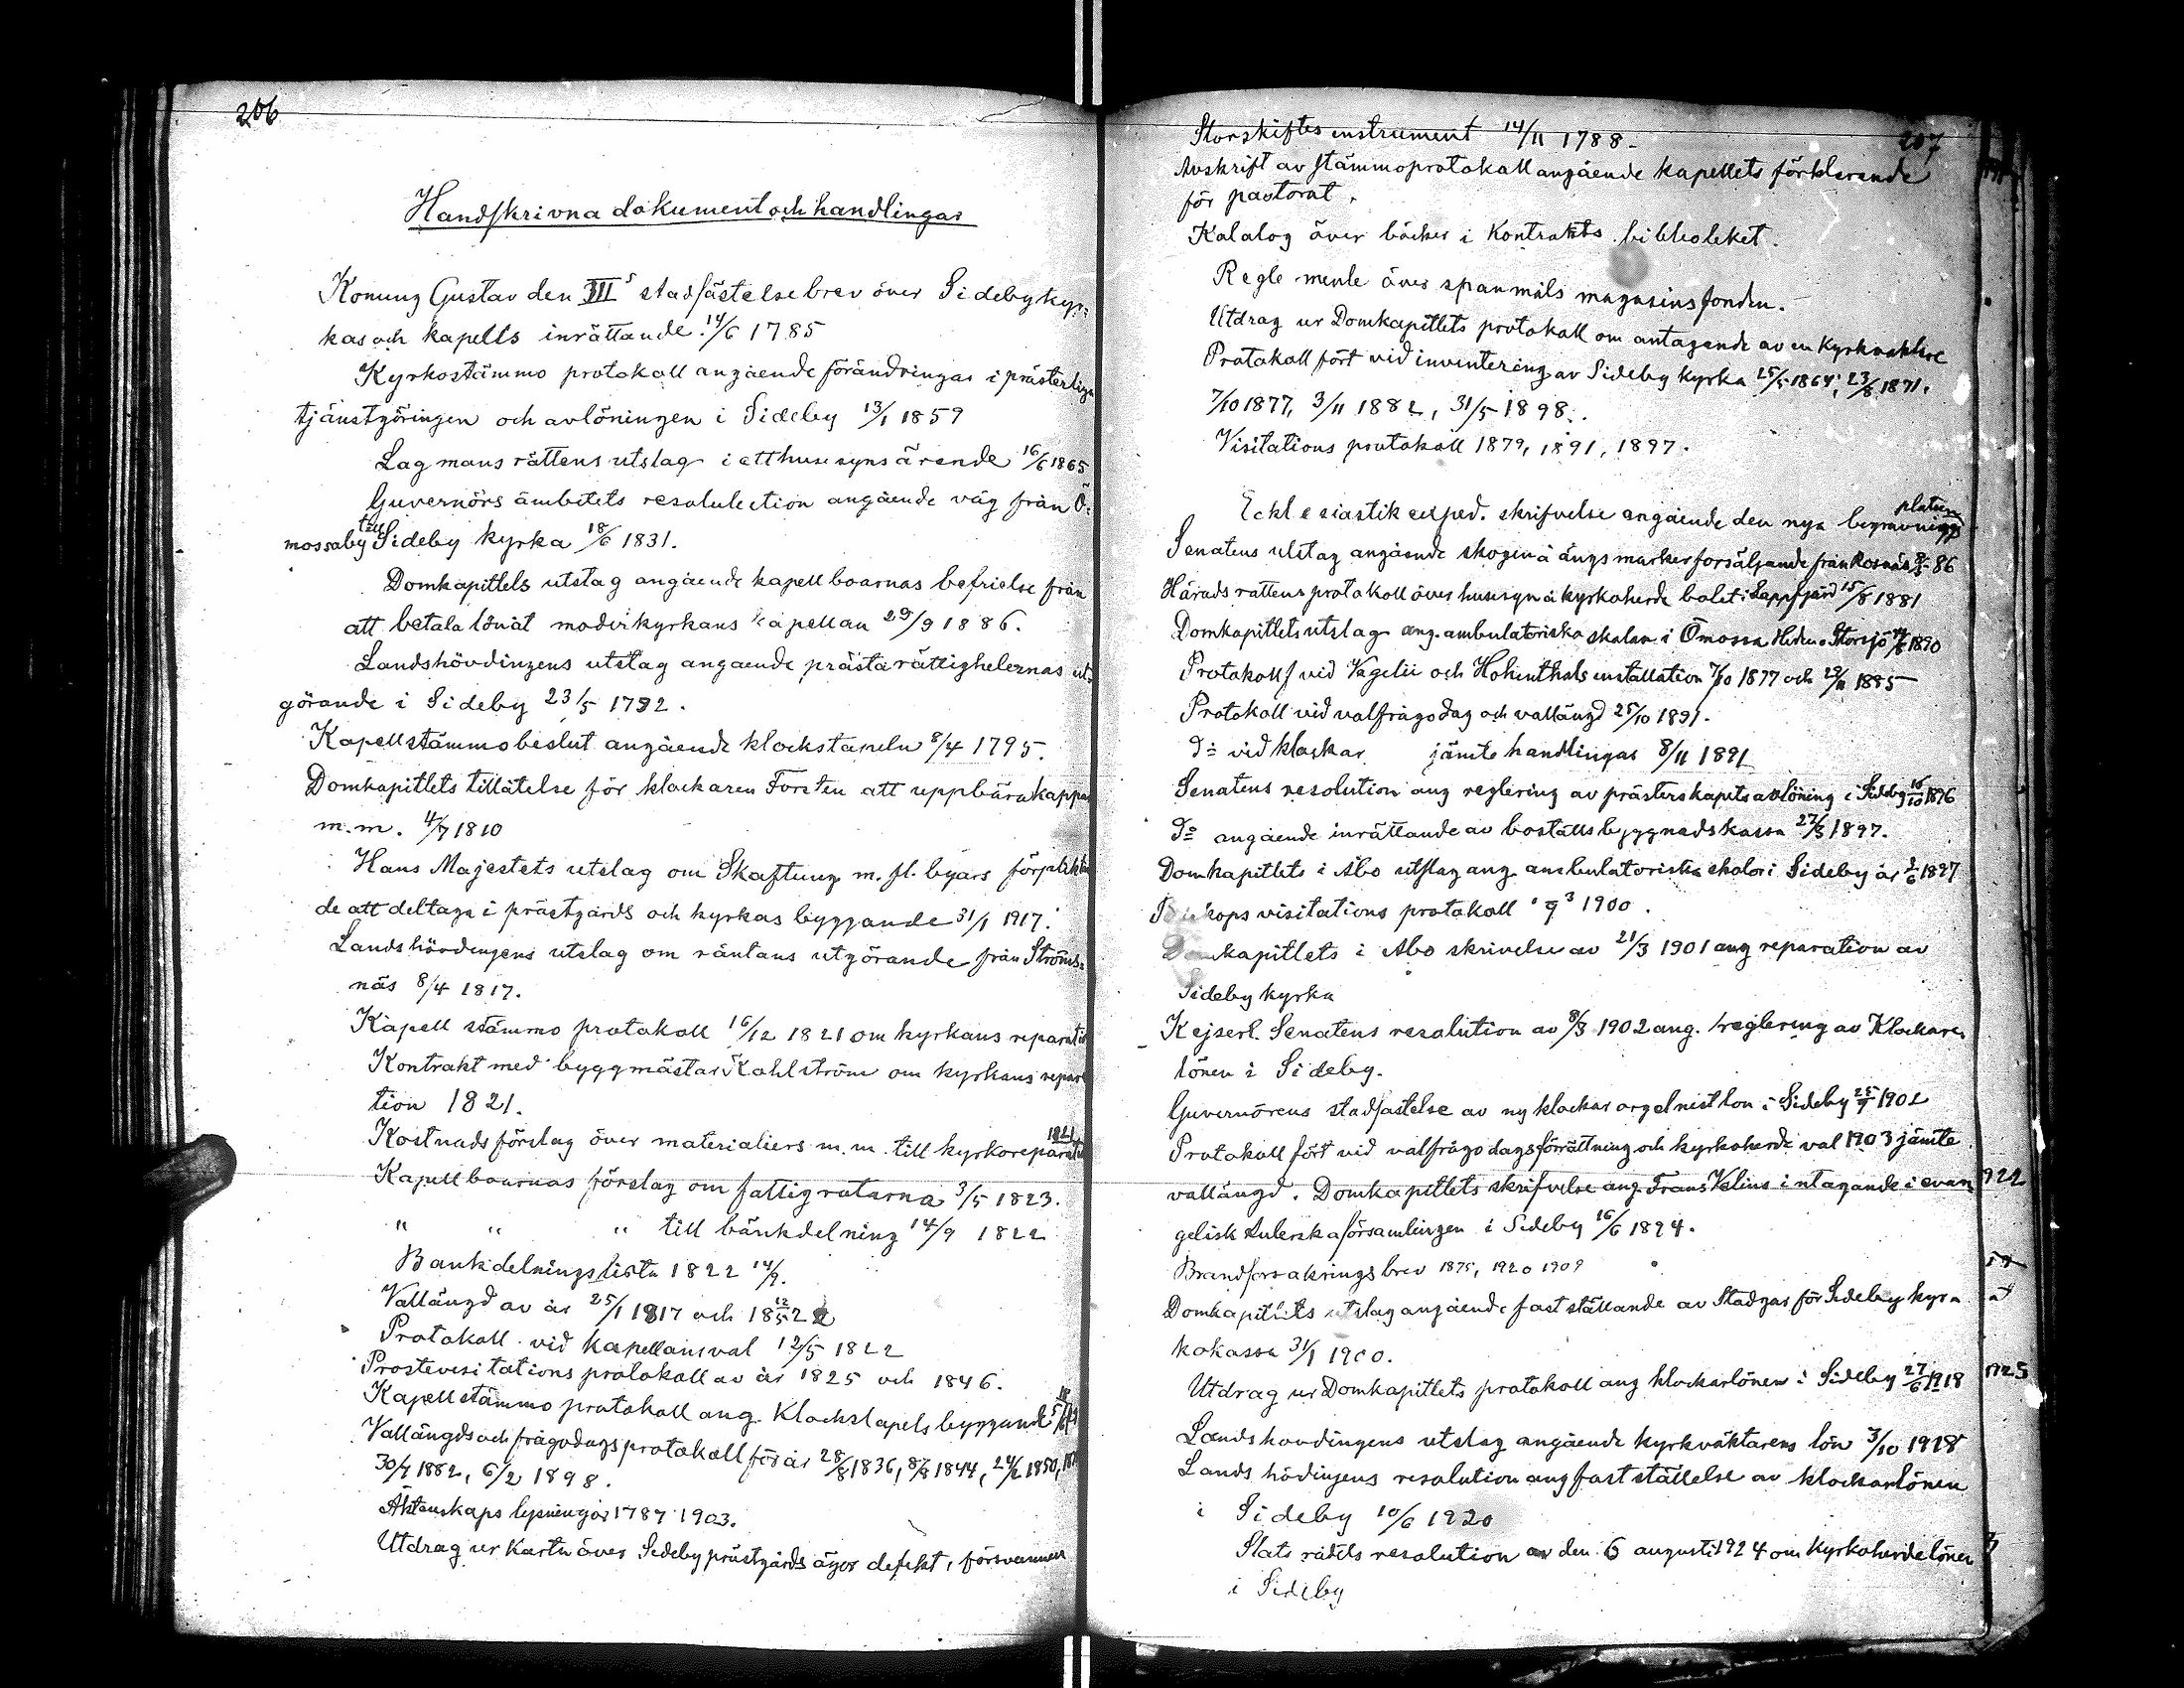 206
Handskrivna dokument och handlingar
Konung Gustav den III s stadfästelsebrev över Sideby kyr=
kas och kapells inrättande. 14/6 1785
Kyrkostämmo protokoll angående förändringar i prästerliga
tjänstgöringen och avlöningen i Sideby 13/1 1859
Lagmans rättens utslag i ett husesyns ärende 16/6 1865
Guvernörs ämbetets resolulution angående väg från Ö=
mossaby till Sideby kyrka 18/6 1831.
Domkapitlels utslag angående kapellboarnas befrielse från
att betala lön åt moderkyrkans kapellan 29/9 1886.
Landshövdingens utslag angaende prästarättighelernas ut=
görande i Sideby 23/5 1792.
Kapellstämmobeslut angående klockstapeln 8/4 1795.
Domkapitlets tillåtelse för klockaren Forsten att uppbära kappar
m.m. 4/7 1810
Hans Majestets utslag om Skaftung m. fl. byars förplikt
de att deltaga i prästgårds och kyrkas byggande 31/1 1917.
Landshövdingens utslag om räntans utgörande från Ströms=
näs 8/4 1817.
Kapell stämmo protokoll 16/12 1821 om kyrkans reparati
Kontrakt med byggmästar Kahlström om kyrkans repar
tion 1821.
Kostnadsförslag över materialiers m.m. till kyrkoreparati 1821
Kapellboarnas förslag om fattigrotarna 3/5 1823.
" " " till bänkdelning 14/9 1822
Bankdelningslista 1822 14/9.
Vallängd av år 25/1 1817 och 18 12/5 22
Protokoll vid kapellansval 12/5 1822
Prostevisitations protokoll av år 1825 och 1846.
Kapellstämmo protokoll ang. Klockstapels byggande
Vallängds och frågodags protokoll för år 28/8 1836, 8/8 1844, 24/2 1850,
30/4 1882, 6/2 1898.
Äktenskaps lysningar 1787 1903.
Utdrag ur Karta över Sideby prästgårds ägor defekt, försvunnen
207
Storskiftes instrument 14/11 1788.
Avskrift av stämmoprotokoll angående kapellets förklarande
för pastorat.
Katalog över böcker i Kontrakts biblioleket.
Regle mente över spanmåls magasinsfonden.
Utdrag ur Domkapitlets protokoll om antagande av en kyrkvaktare
Protokoll fört vid inventering av Sideby kyrka 25/5 1864; 23/8 1871.
7/10 1877, 3/11 1882, 31/5 1898.
Visitations protokoll 1879, 1891, 1897.
Ecklesiastik exped. skrifvelse angående den nya begravnings platsen
Senatens utslag angående skogen å ängs marker forsäljande från Rosnäs 86
Härads rättens protokoll över husesyn å kyrkoherde bolet i Lappfjärd 15/8 1881
Domkapitlets utslag ang. ambulatoriska skolan i Ömossa Heden o Storsjö 1890
Protokoll vid Vegelii och Hohenthals installation 7/10 1877 och 29/11 1885
Protokoll vid valfrågodag och vallängd 25/10 1891.
Do vid klockar jämte handlingar 8/11 1891
Senatens resolution ang reglering av prästerskapets avlöning i Sideby 16/10 1896
Do angående inrättande av boställs byggnadskassa 27/3 1897.
Domkapitlets i Åbo utslag ang ambulatoriska skolor i Sideby år 1/6 1897
Biskops visitations protokoll 1900.
Domkapitlets i Åbo skrivelse av 21/3 1901 ang reparation av
Sideby kyrka
Kejserl. Senatens resolution av 8/8 1902 ang. reglering av Klockare
lönen i Sideby.
Guvernörens stadfästelse av ny klockar orgelnist lön i Sideby 25/9 1902
Protokoll fört vid valfrågo dagsförrättning och kyrkoherde val 1903 jämte
vallängd. Domkapitlets skrifvelse ang. Frans Velins intagande i evan 922
gelisk luterska församlingen i Sideby 16/6 1894.
Brandforsakrings brev 1875, 1920 1909
Domkapitlets utslag angående fast ställande av Stadgar för Sideby kyr
kokassa 31/1 1900.
Utdrag ur Domkapitlets protokoll ang klockarlönen i Sideby 27/6 1918 1925
Landshovdingens utslag angående kyrkväktarens lön 3/10 1918
Lands hödingens resolution ang fastställelse av klockarlönen
i Sideby 10/6 1920
Stats rådets resolution av den 6 augusti 1924 om kyrkoherdelönen
i Sideby